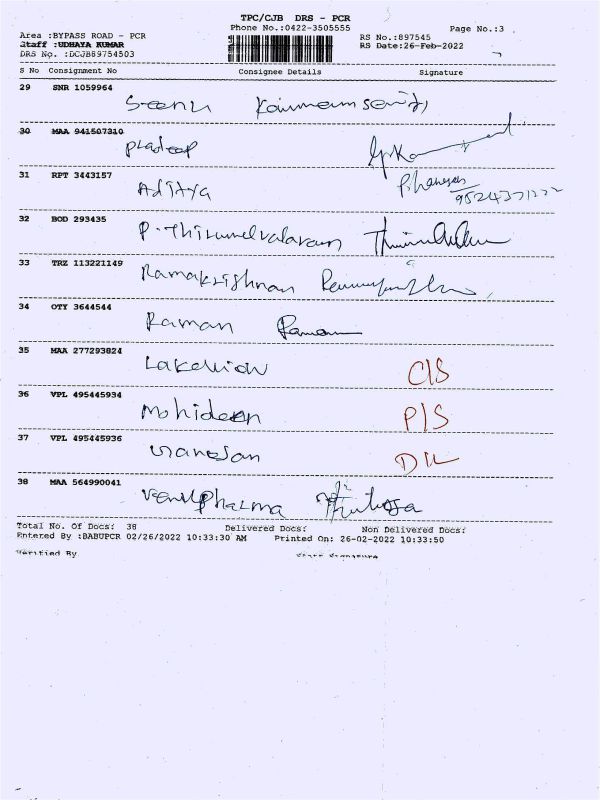 TPC/CJB DRS - PCR
Phone No.:0422-3505555
Page No.:3
Area :BYPASS ROAD - PCR
RS No.:897545
Staff :UDHAYA KUMAR
RS Date:26-Feb-2022
DRS No. :DCJB89754503
S No Consignment No Consignee Details Signature
29 SNR 1059964
Seenu
30 MAA 941507310
Pradeep
31 RPT 3443157
Aditya
32 BOD 293435
P. Thirumelvalavam
33 TRZ 113221149
Ramakrishnan
34 OTY 3644544
Raman Raman
35 MAA 277293824
C/S
36 VPL 495445934
Mohideen P/S
37 VPL 495445936
Ganesan D/L
38 MAA 564990041
Venu Pharma
Total No. Of Docs: 38 Delivered Docs: Non Delivered Docs:
Entered By :BABUPCR 02/26/2022 10:33:30 AM Printed On: 26-02-2022 10:33:50
Verified By